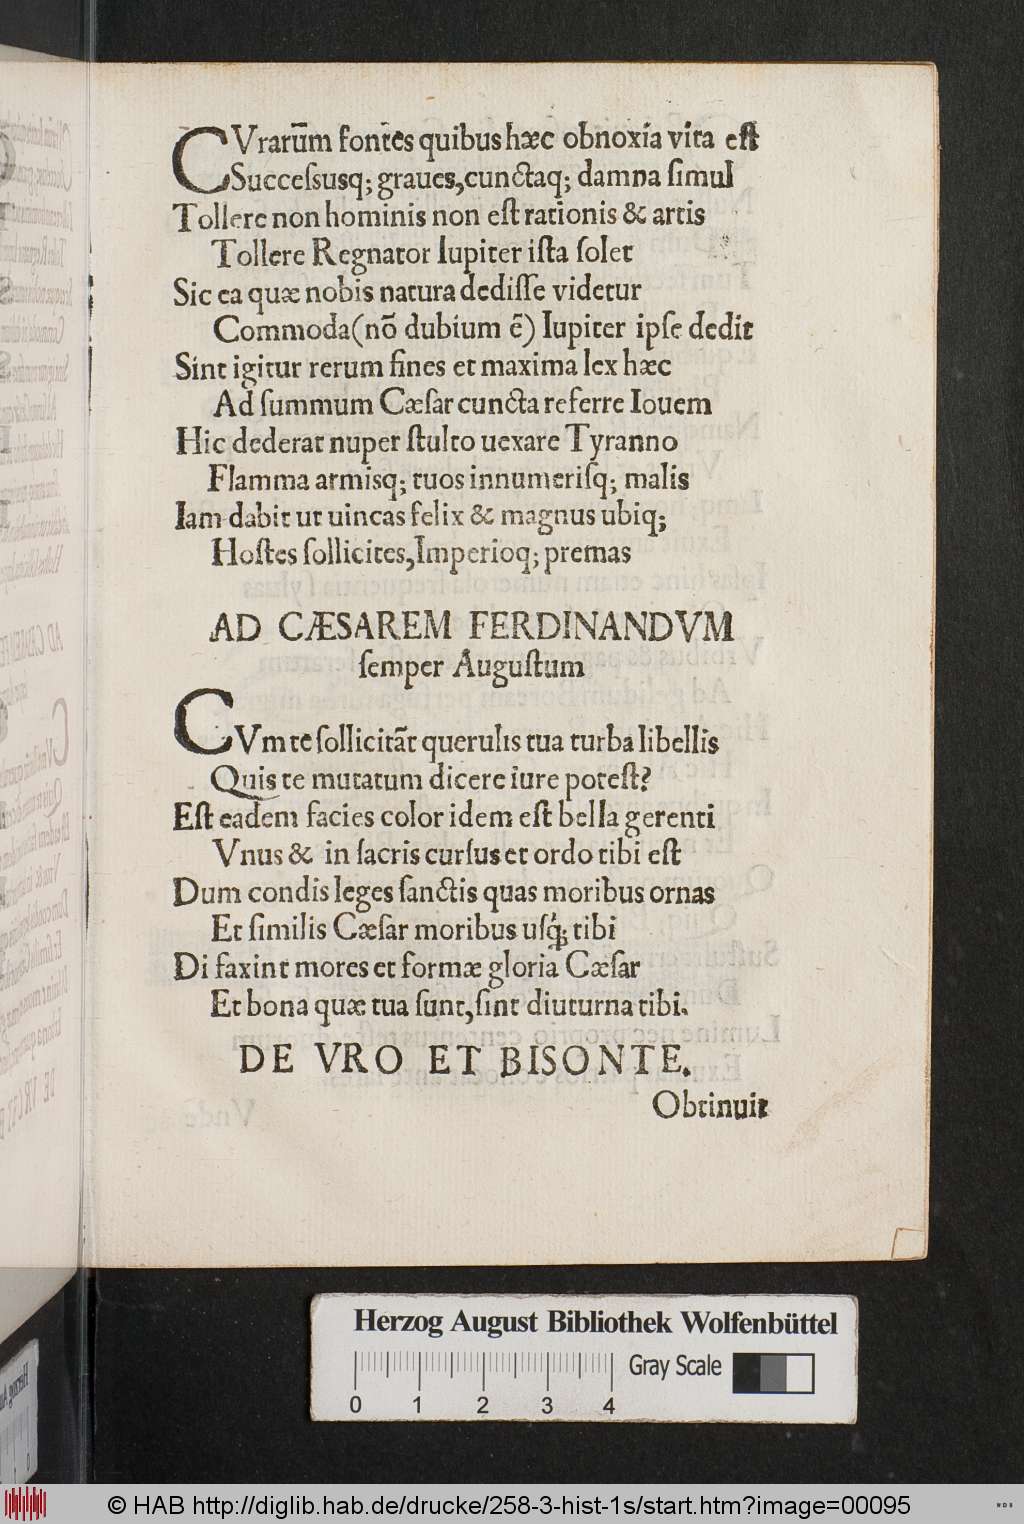 CVrarum̄ fontes quibus hæc obnoxia vita eſt
Succeſsusq; graues, cunctaq; damna ſimul
Tollere non hominis non eſt rationis & artis
Tollere Regnator Iupiter iſta ſolet
Sic ea quæ nobis natura dediſſe videtur
Commoda (nō dubium ē) Iupiter ipſe dedit
Sint igitur rerum fines et maxima lex hæc
Ad ſummum Cæſar cuncta referre Iouem
Hic dederat nuper ſtulto uexare Tyranno
Flamma armisq; tuos innumeriſq; malis
Iam dabit ut uincas felix & magnus ubiq;
Hoſtes ſollicites, Imperioq; premas
AD CÆSAREM FERDINANDVM
ſemper Auguſtum
CVm te ſollicitāt querulis tua turba libellis
Quis te mutatum dicere iure poteſt?
Eſt eadem facies color idem eſt bella gerenti
Vnus & in ſacris curſus et ordo tibi eſt
Dum condis leges ſanctis quas moribus ornas
Et ſimilis Cæſar moribus uſq; tibi
Di faxint mores et formæ gloria Cæſar
Et bona quæ tua ſunt, ſint diuturna tibi.
DE VRO ET BISONTE.
Obtinuit
Herzog August Bibliothek Wolfenbüttel
Gray Scale
0 1 2 3 4
© HAB http://diglib.hab.de/drucke/258-3-hist-1s/start.htm?image=00095